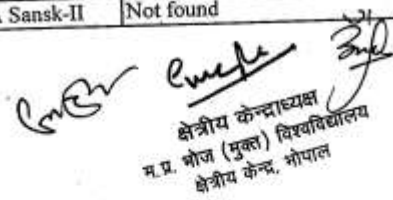 Sansk-II Not found
क्षेत्रीय केन्द्राध्यक्ष
म.प्र. भोज (मुक्त) विश्वविद्यालय
क्षेत्रीय केन्द्र, भोपाल